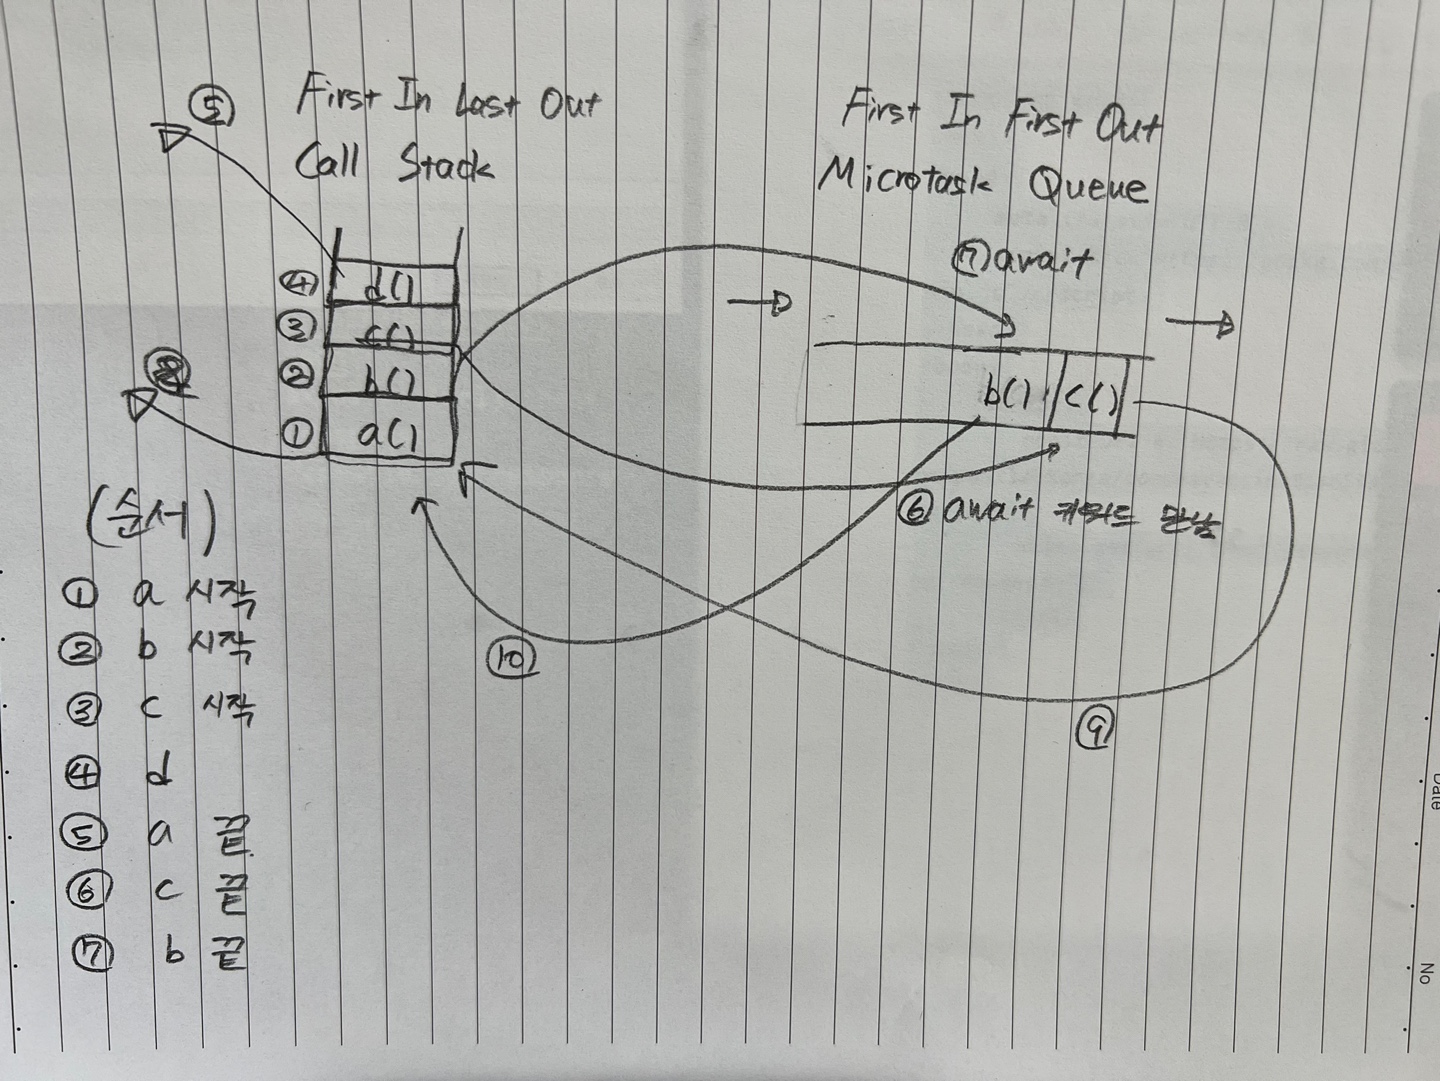 ⑤
First In Last Out
Call Stack
④ d()
③ c()
② b()
① a()
First In First Out
Microtask Queue
⑦ await
b() c()
⑥ await 키워드 만남
⑩
⑨
(순서)
① a 시작
② b 시작
③ c 시작
④ d
⑤ a 끝
⑥ c 끝
⑦ b 끝
Date
No